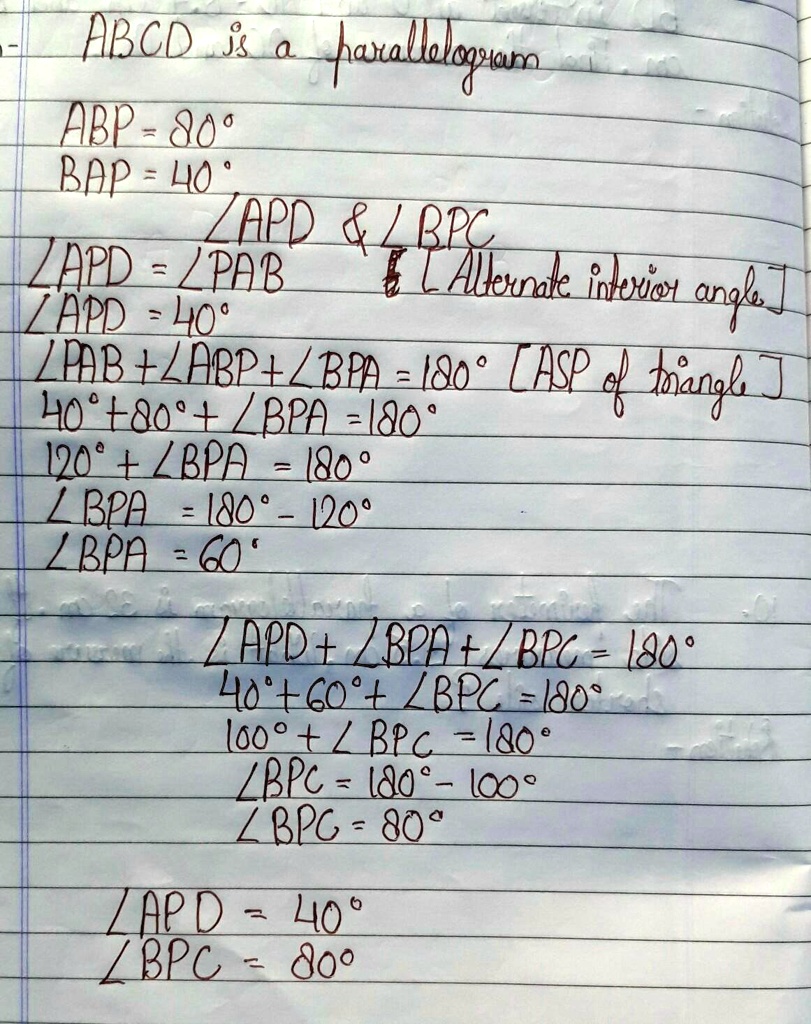 ABCD is a parallelogram
ABP = 80°
BAP = 40°
∠APD & ∠BPC
∠APD = ∠PAB [Alternate interior angle]
∠APD = 40°
∠PAB + ∠ABP + ∠BPA = 180° [ASP of triangle]
40° + 80° + ∠BPA = 180°
120° + ∠BPA = 180°
∠BPA = 180° - 120°
∠BPA = 60°
∠APD + ∠BPA + ∠BPC = 180°
40° + 60° + ∠BPC = 180°
100° + ∠BPC = 180°
∠BPC = 180° - 100°
∠BPC = 80°
∠APD = 40°
∠BPC = 80°